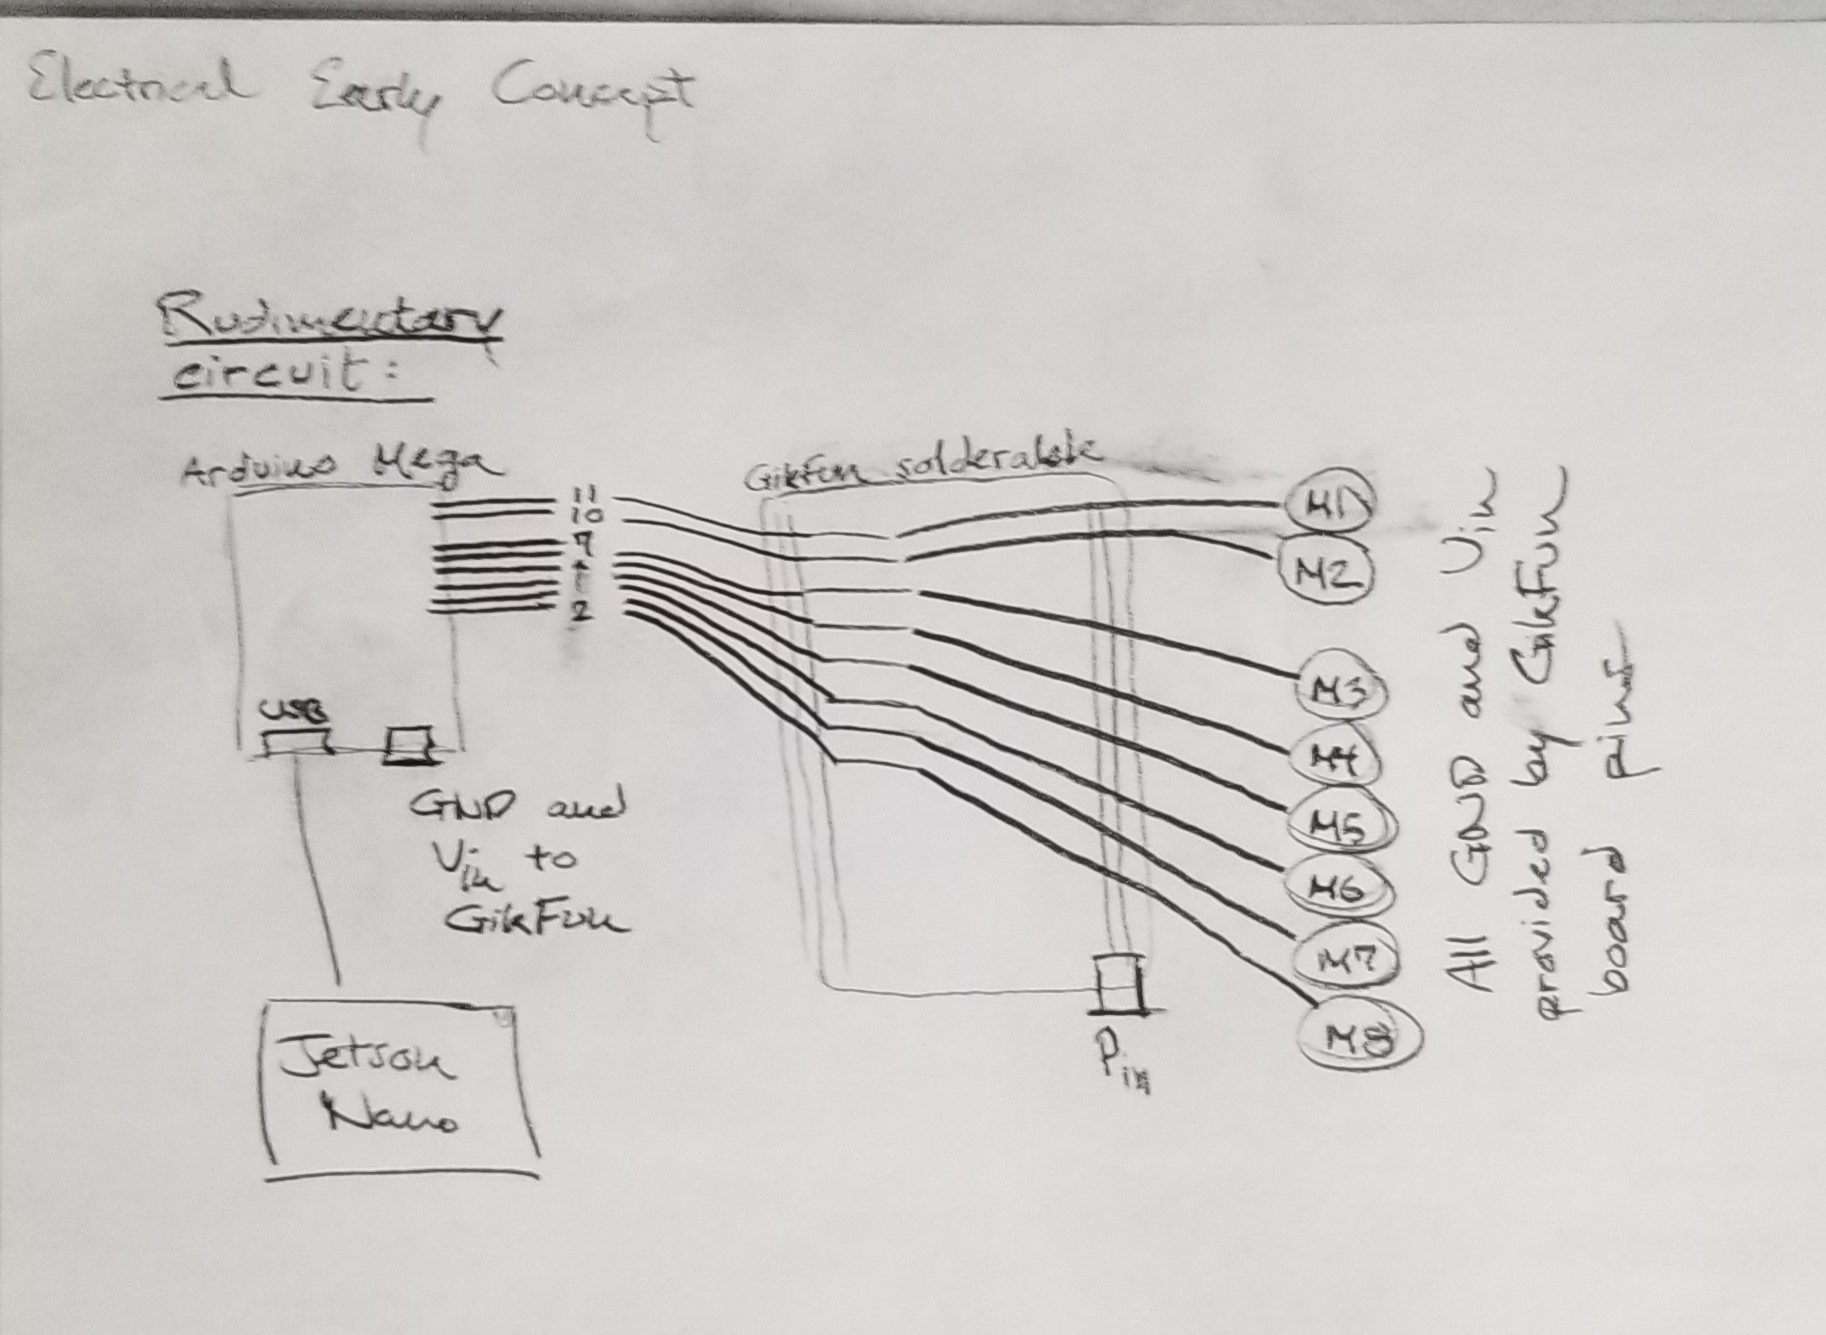 Electrical Early Concept
Rudimentary
circuit:
Arduino Mega
11
10
7
2
USB
GND and
Vin to
GikFun
Jetson
Nano
GikFun solderable
Pin
M1
M2
M3
M4
M5
M6
M7
M8
All GND and Vin
provided by GikFun
board pins